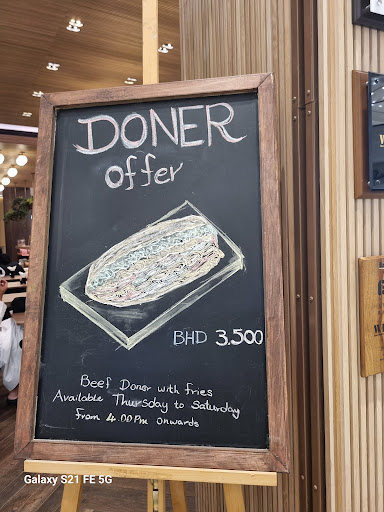 DONER
offer
BHD 3.500
Beef Doner with fries
Available Thursday to Saturday
from 4.00Pm onwards
Galaxy S21 FE 5G